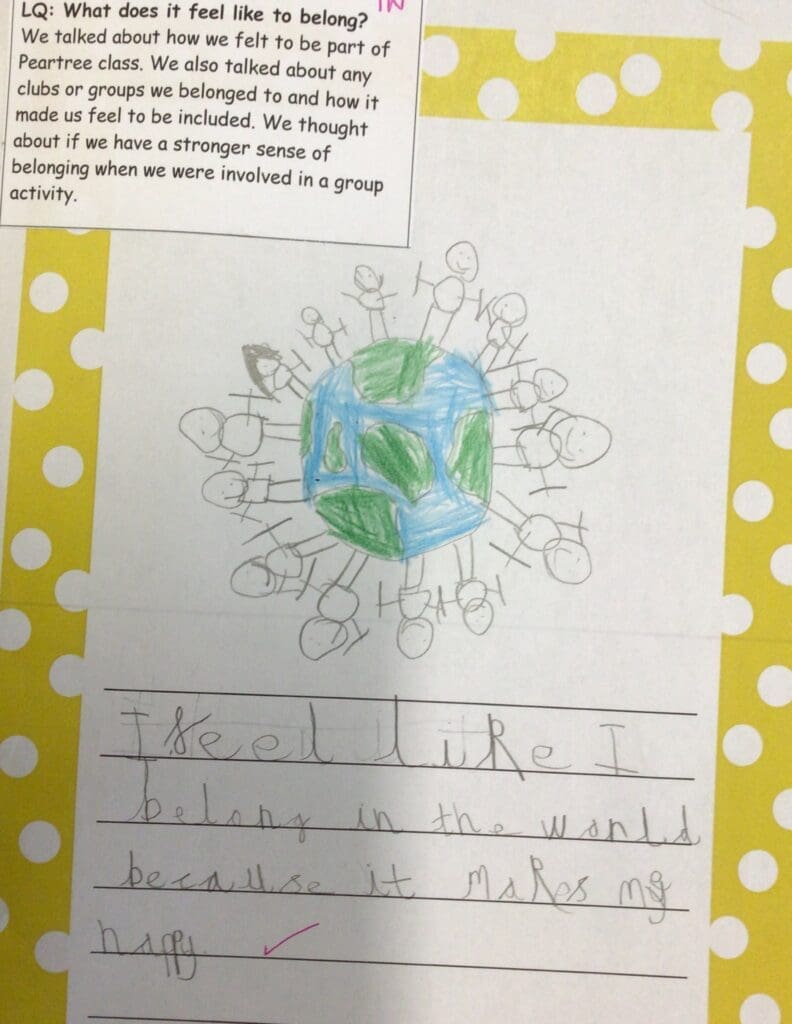 IN
LQ: What does it feel like to belong?
We talked about how we felt to be part of
Peartree class. We also talked about any
clubs or groups we belonged to and how it
made us feel to be included. We thought
about if we have a stronger sense of
belonging when we were involved in a group
activity.
I feel like I
belong in the world
because it makes my
happy